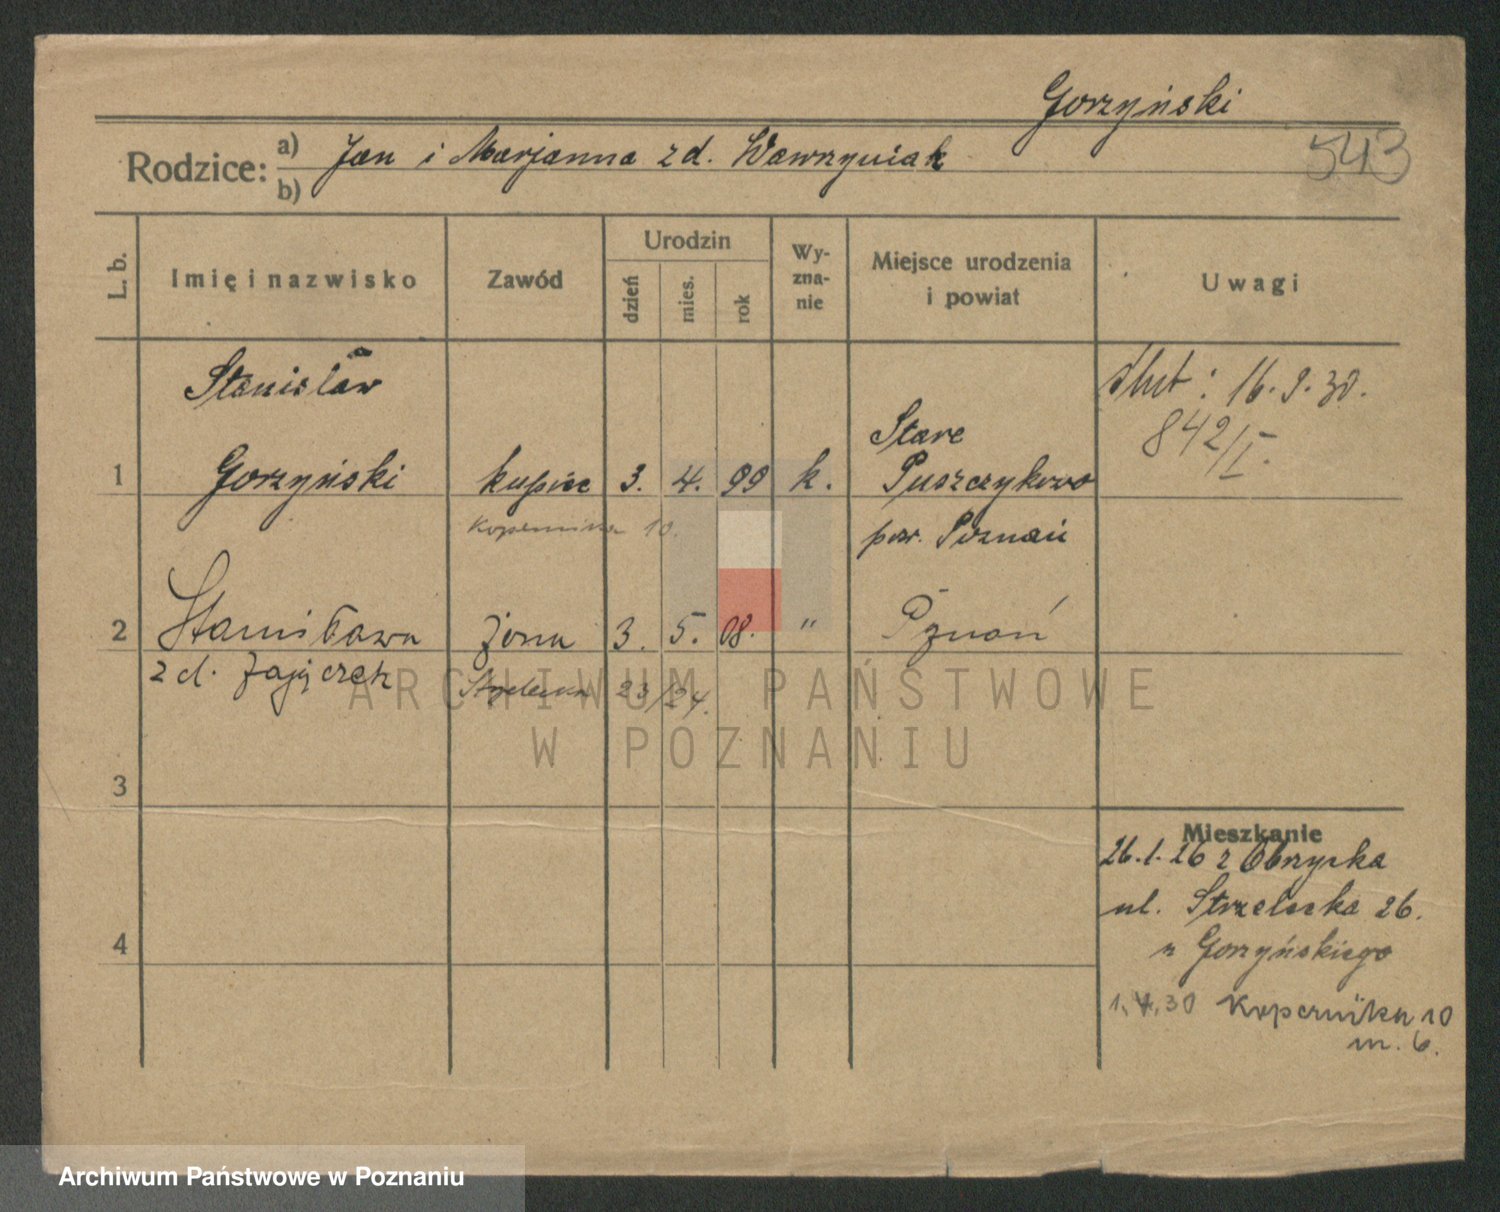 Gorzyński
543
Rodzice: a) Jan i Marjanna zd. Wawrzyniak
b)
L. b.
Imię i nazwisko
Zawód
Urodzin
dzień
mies.
rok
Wy-
zna-
nie
Miejsce urodzenia
i powiat
Uwagi
Stanisław
ślub: 16.9.30.
842/I.
Stare
1 Gorzyński kupiec 3. 4. 99 k. Puszczykowo
Kopernika 10.
pow. Poznań
2 Stanisława żona 3. 5. 08. " Poznań
zd. Zajączek
Strzelecka 23/24.
ARCHIWUM PAŃSTWOWE
W POZNANIU
3
Mieszkanie
26.1.26 z Obrzycka
ul. Strzelecka 26.
4
u Gorzyńskiego
1.4.30 Kopernika 10
m. 6.
Archiwum Państwowe w Poznaniu